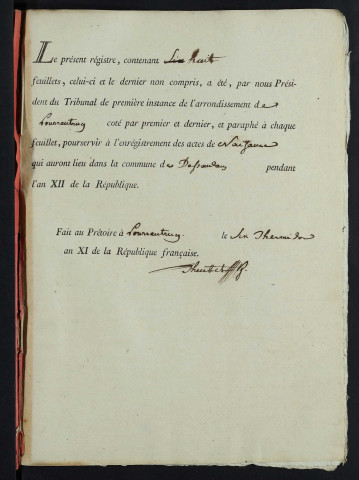 Le présent régistre, contenant huit
feuillets, celui-ci et le dernier non compris, a été, par nous Prési-
dent du Tribunal de première instance de l'arrondissement de
Porrentruy coté par premier et dernier, et paraphé à chaque
feuillet, pour servir à l'enrégistrement des actes de Naissance
qui auront lieu dans la commune de pendant
l'an XII de la République.
Fait au Prétoire à Porrentruy le six Thermidor
an XI de la République française.